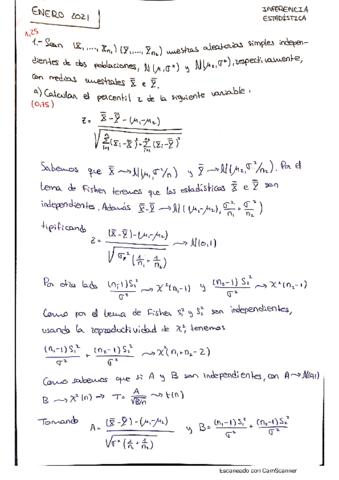 ENERO 2021
INFERENCIA
ESTADÍSTICA
1,25
1.- Sean (X₁,..., Xn₁) (Y₁,..., Yn₂) muestras aleatorias simples indepen-
dientes de dos poblaciones, N(μ₁, σ²) y N(μ₂, σ²), respectivamente,
con medias muestrales X̄ e Ȳ.
a) Calcular el percentil z de la siguiente variable:
(0,75)
Z =
Sabemos que X̄ → N(μ₁, σ²/n₁) y Ȳ → N(μ₂, σ²/n₂). Por el
lema de Fisher tenemos que los estadísticos X̄ e Ȳ son
independientes. Además X̄-Ȳ → N((μ₁-μ₂), σ²/n₁ + σ²/n₂)
tipificando
Z = (X̄-Ȳ)-(μ₁-μ₂) / √(σ²(1/n₁ + 1/n₂)) → N(0,1)
Por otro lado (n₁-1)S₁²/σ² → χ²(n₁-1) y (n₂-1)S₂²/σ² → χ²(n₂-1)
Como por el lema de Fisher S₁² y S₂² son independientes,
usando la reproductividad de χ², tenemos
(n₁-1)S₁²/σ² + (n₂-1)S₂²/σ² → χ²(n₁+n₂-2)
Como sabemos que si A y B son independientes, con A → N(0,1)
B → χ²(n) ⇒ T = A/√(B/n) → t(n)
Tomando A = (X̄-Ȳ)-(μ₁-μ₂) / √(σ²(1/n₁ + 1/n₂)) y B = (n₁-1)S₁²/σ² + (n₂-1)S₂²/σ²
Escaneado con CamScanner